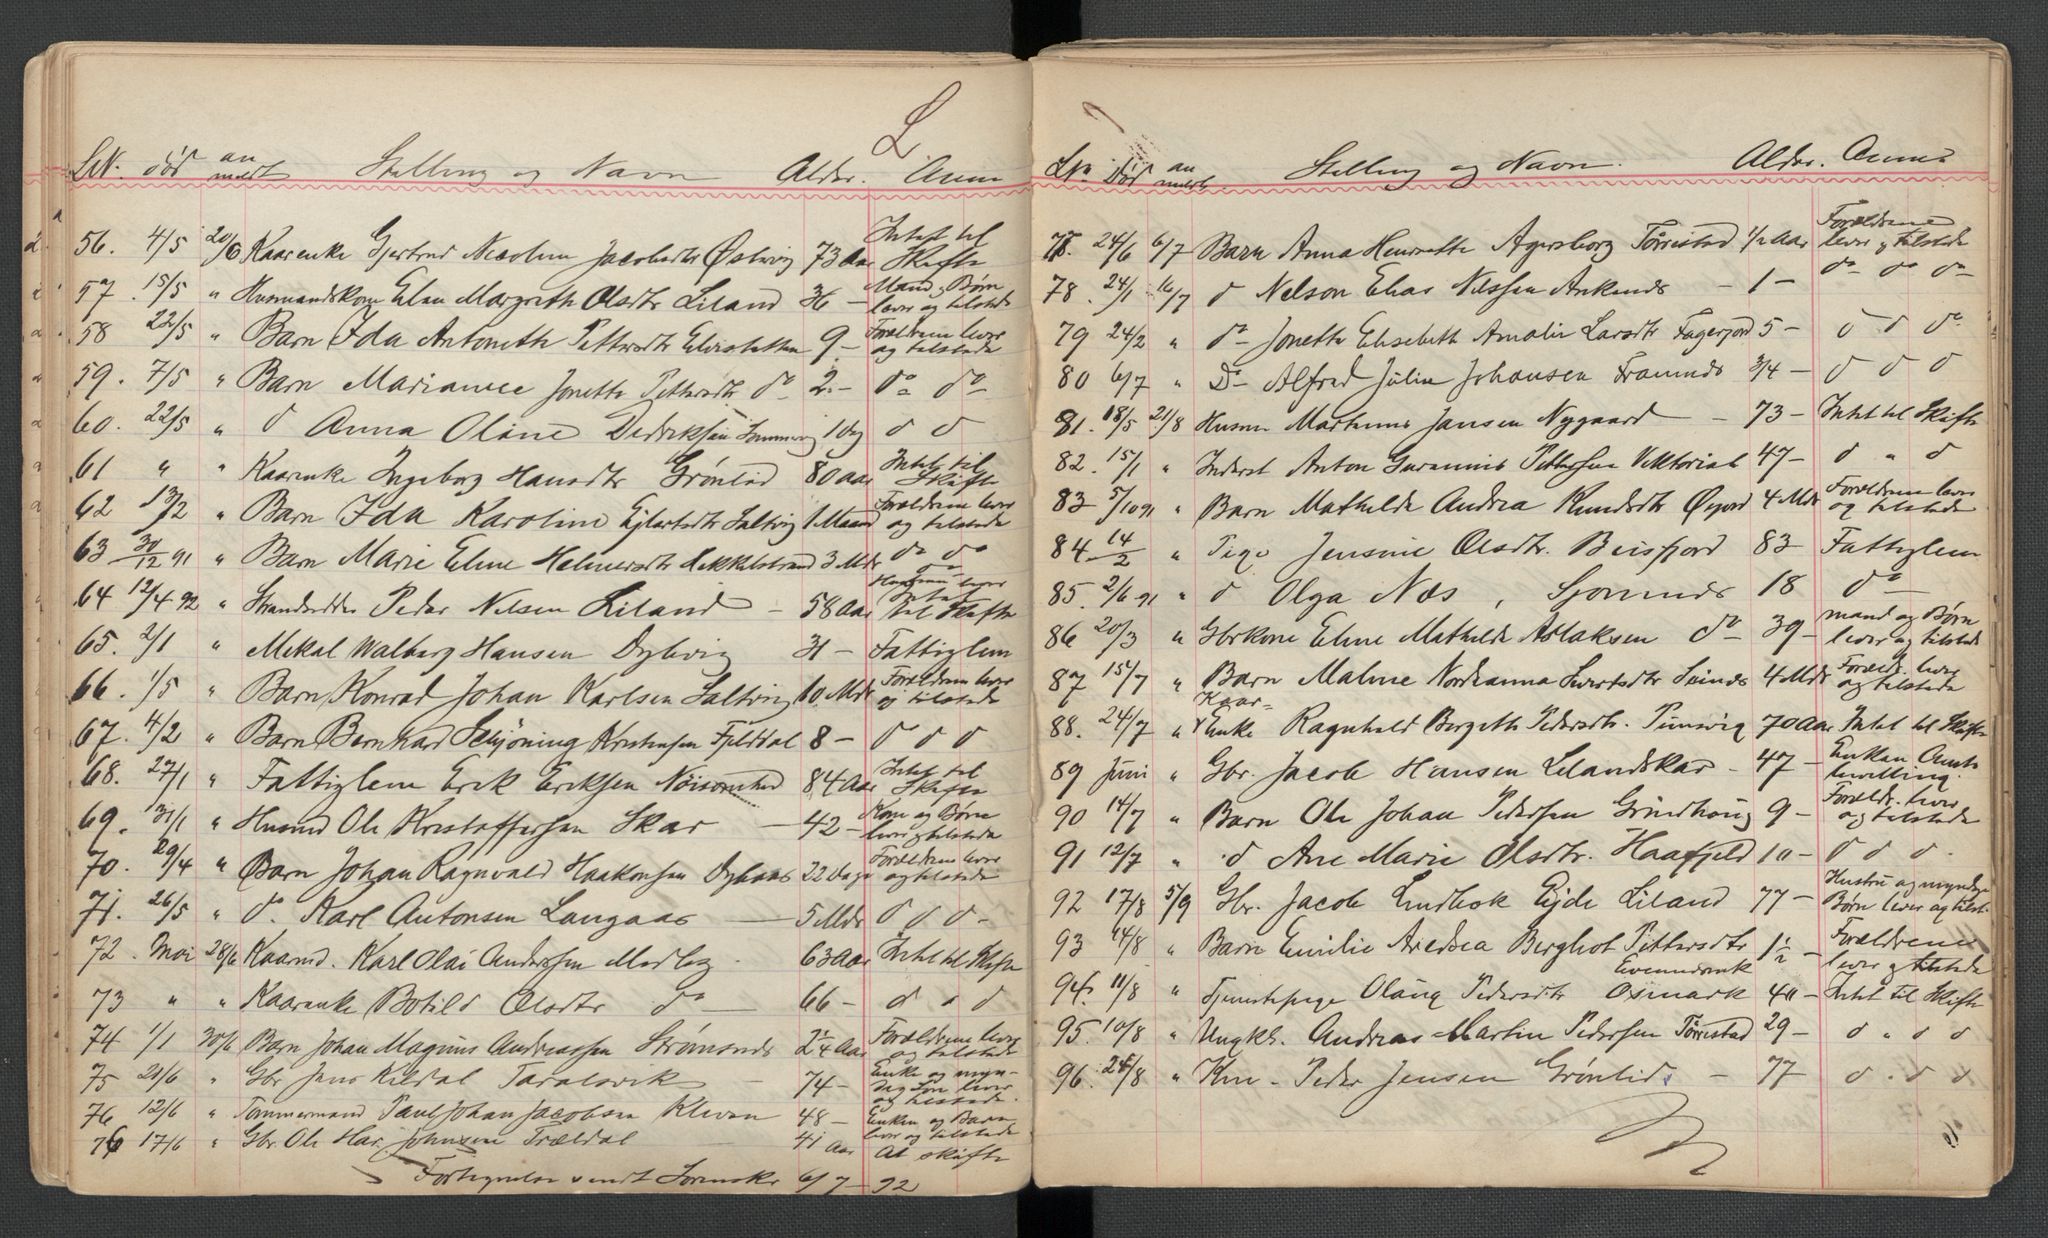 L
LN. død an meldt Stilling og Navn Alder. Anm
56. 4/5 20/6 Kaarenke Gjertrud Nicoline Jacobsdtr Østvig 73 Aar Intet til Skifte
57. 15/5 " Husmandskone Elen Margreth Olsdtr Liland 36 – Mand og Børn lever og tilstede
58 22/5 " Barn Ida Antonette Pettersdtr Elvestakken 9 – Forældrene lever og tilstede
59. 7/5 " Barn Marianne Jonette Pettersdtr do 2. – do do
60. 22/5 " d Anna Oline Dedriksen 1 Dag d d
61 " " Kaarenke Ingeborg Hansdtr Grønlid 80 Aar Intet til Skifte
62 13/2 " Barn Ida Karoline Ejlertsdtr Saltvig 1 Maaned Forældrene lever og tilstede
63 30/12 91 " Barn Marie Eline Helmersdtr Hekkelstrand 3 Mdr do do do
64 12/4 92 " Strandsidder Peder Nilsen Liland – 58 Aar Intet til Skifte
65. 2/1 " Mekal Walberg Hansen Dybvig 31 – Fattiglem
66. 1/5 " Barn Konrad Johan Karlsen Saltvig 10 Mdr Forældrene lever og tilstede
67. 4/2 " Barn Bernhard Schjøning Kristensen Fjeldal 8 – d d d
68. 27/1 " Fattiglem Erik Eriksen Nøisomhed 84 Aar Intet til Skifte
69. 31/1 " Husmd Ole Kristoffersen Skar – 42 – Kone og Børn lever og tilstede
70. 29/4 " Barn Johan Ragnvald Haakonsen 22 Dage Forældrene lever og tilstede
71. 26/5 " do Karl Antonsen Langaas – 5 Mdr d d d –
72. Mai 28/6 Kaarmd. Karl Olai Anderssen Medleg 63 Aar Intet til Skifte
73 " " Kaarenke Botild Olsdtr do – 66 – d d d
74 1/1 30/6 Barn Johan Magnus Andreassen Strømsnes 2 1/4 Aar Forældrene lever og tilstede
75 21/6 " Gbr Jens Kildal Taralsvik – 74 – Enke og myndig Søn lever og tilstede.
76 12/6 " Tømmermand Paul Johan Jacobsen Kleven 48 – Enken og Børn lever og tilstede
76 17/6 " Gbr. Ole Har. Johnsen Trældal 41 Aar At skifte
Fortegnelse sendt Sorensk. 6/7 – 92
LN død an meldt. Stilling og Navn. Alder. Anm
77. 24/6 6/7 Barn Anna Henriette Agersborg Tørrestad 1/2 Aar Forældrene lever og tilstede
78. 24/1 16/7 d Nelson Elias Nilssen Ankenes – 1 – do do do
79 24/2 " do Jonette Elisebeth Amalie Larsdtr Fagerjord 5 – d d do
80 6/7 " Do Alfred Julin Johansen Framnes 3/4 – d d d
81. 18/5 21/8 Husm Martinus Jansen Nygaard – 73 – Intet til Skifte
82. 15/1 " Inderst Anton Pettersen Viktoriah 47 – d " d
83 5/10 91 " Barn Mathilde Andrea Knudsdtr Øyjord 4 Mdr Forældrene lever og tilstede
84 14/2 " Pige Jensine Olsdtr. Beisfjord 83 Fattiglem
85. 2/6 91 " d Olga Næs, Sjomnes 18 do
86 20/3 " Gbrkone Eline Mathilde Aslaksen do 39 – mand og Børn lever og tilstede
87 15/7 " Barn Malvine Nordianna Sivertsdtr Seines 4 Mdr Forældr. lever og tilstede
88. 24/7 " Kaar-Enke Ragnhild Bergette Pedersdtr. 70 Aar Intet til Skifte
89 Juni " Gbr. Jacob Hansen Lilandskar – 47 – Enken
90 14/7 " Barn Ole Johan Pedersen Grindhoug 9 – Forældr. lever og tilstede
91 12/7 " d Ane Marie Olsdtr. Haafjeld 10 – d d d.
92 17/8 5/9 Gbr. Jacob Lindbæk Ejde Liland 77 – Hustru og myndige Børn lever og tilst.
93 14/8 " Barn Emilie Aredsea Berghot Pettersdtr Evenesmark 1 1/2 Forældrene lever og tilstede
94. 11/8 " Tjenestepige Olava Pedersdtr Osmark 40 – Intet til Skifte
95. 10/8 " Ungkl. Andreas Martin Pedersen Tørrestad 29 – d " d d
96. 24/8 " Km – Peder Jensen Grønlid – 77 d . d d